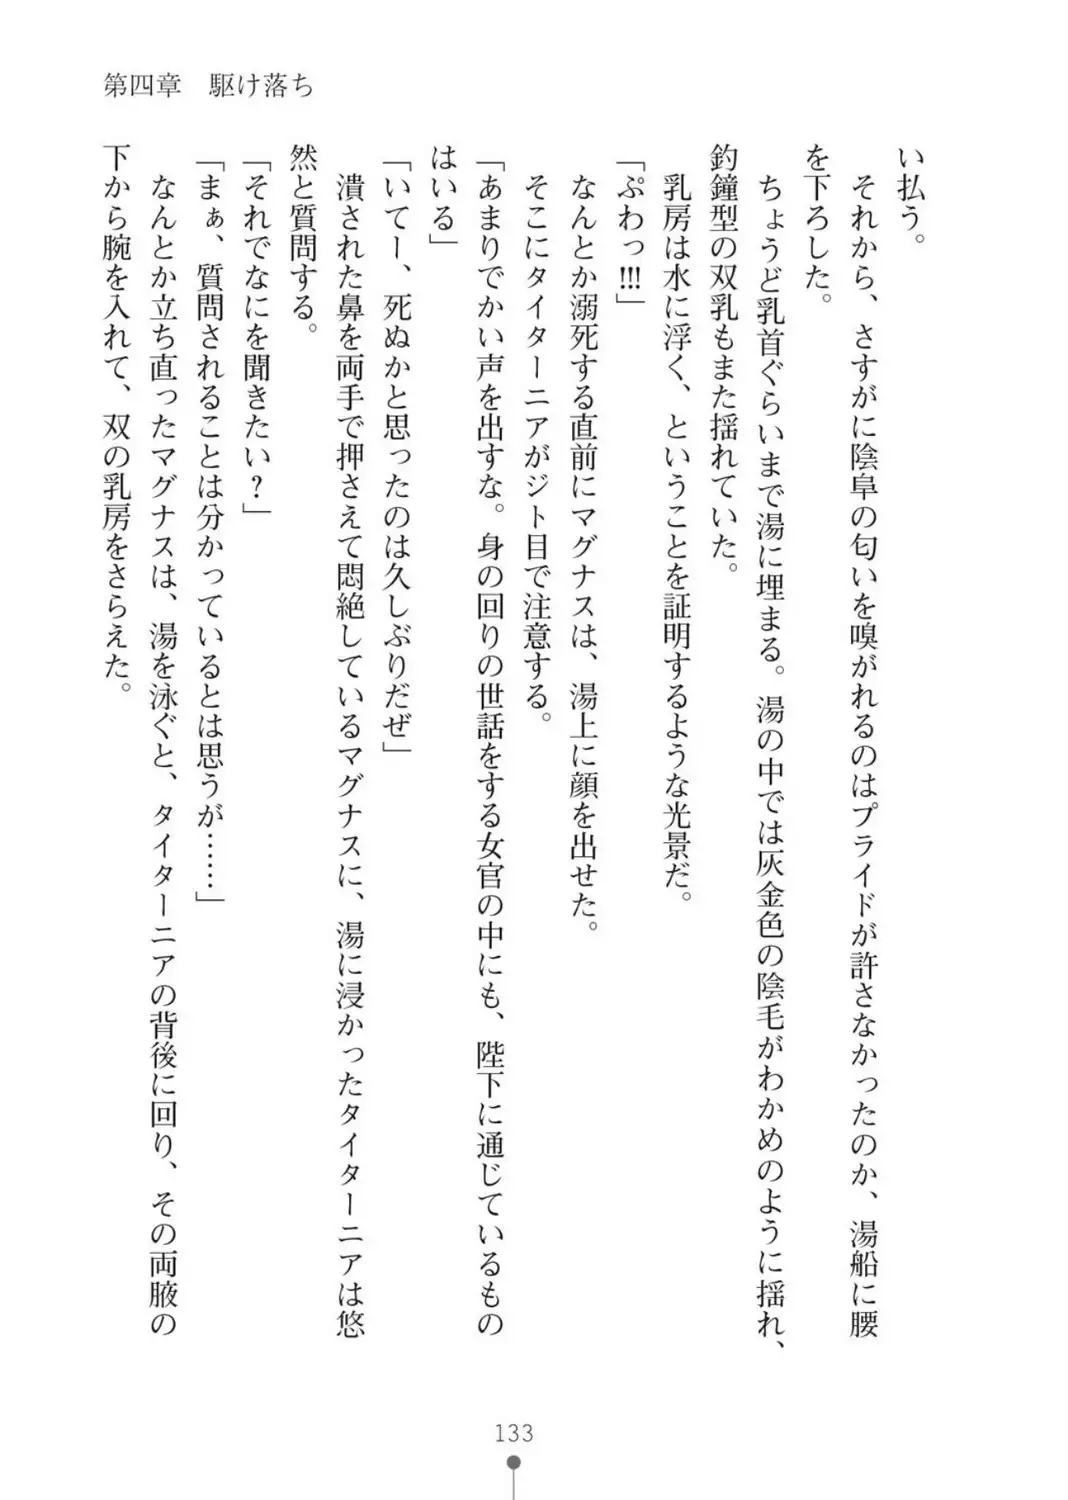 第四章　駆け落ち
い払う。
　それから、さすがに陰阜の匂いを嗅がれるのはプライドが許さなかったのか、湯船に腰
を下ろした。
　ちょうど乳首ぐらいまで湯に埋まる。湯の中では灰金色の陰毛がわかめのように揺れ、
釣鐘型の双乳もまた揺れていた。
　乳房は水に浮く、ということを証明するような光景だ。
「ぷわっ!!!」
　なんとか溺死する直前にマグナスは、湯上に顔を出せた。
　そこにタイターニアがジト目で注意する。
「あまりでかい声を出すな。身の回りの世話をする女官の中にも、陛下に通じているもの
はいる」
「いてー、死ぬかと思ったのは久しぶりだぜ」
　潰された鼻を両手で押さえて悶絶しているマグナスに、湯に浸かったタイターニアは悠
然と質問する。
「それでなにを聞きたい？」
「まぁ、質問されることは分かっているとは思うが……」
　なんとか立ち直ったマグナスは、湯を泳ぐと、タイターニアの背後に回り、その両腋の
下から腕を入れて、双の乳房をさらえた。
133